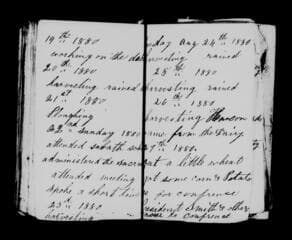 19th 1880
working on the dam
20th 1880
harvesting rained
21st 1880
Ploughing
22nd Sunday 1880
attended sabath
administered the sacrament
attended meeting
spoke a short time
23rd 1880
harvesting
day Aug 24th 1880
harvesting rained
25th 1880
harvesting rained
26th 1880
harvesting Hanson
from the Dairy
27th 1880
cut a little wheat
got some corn & Potato
for confrence
President Smith & other
come to confrence